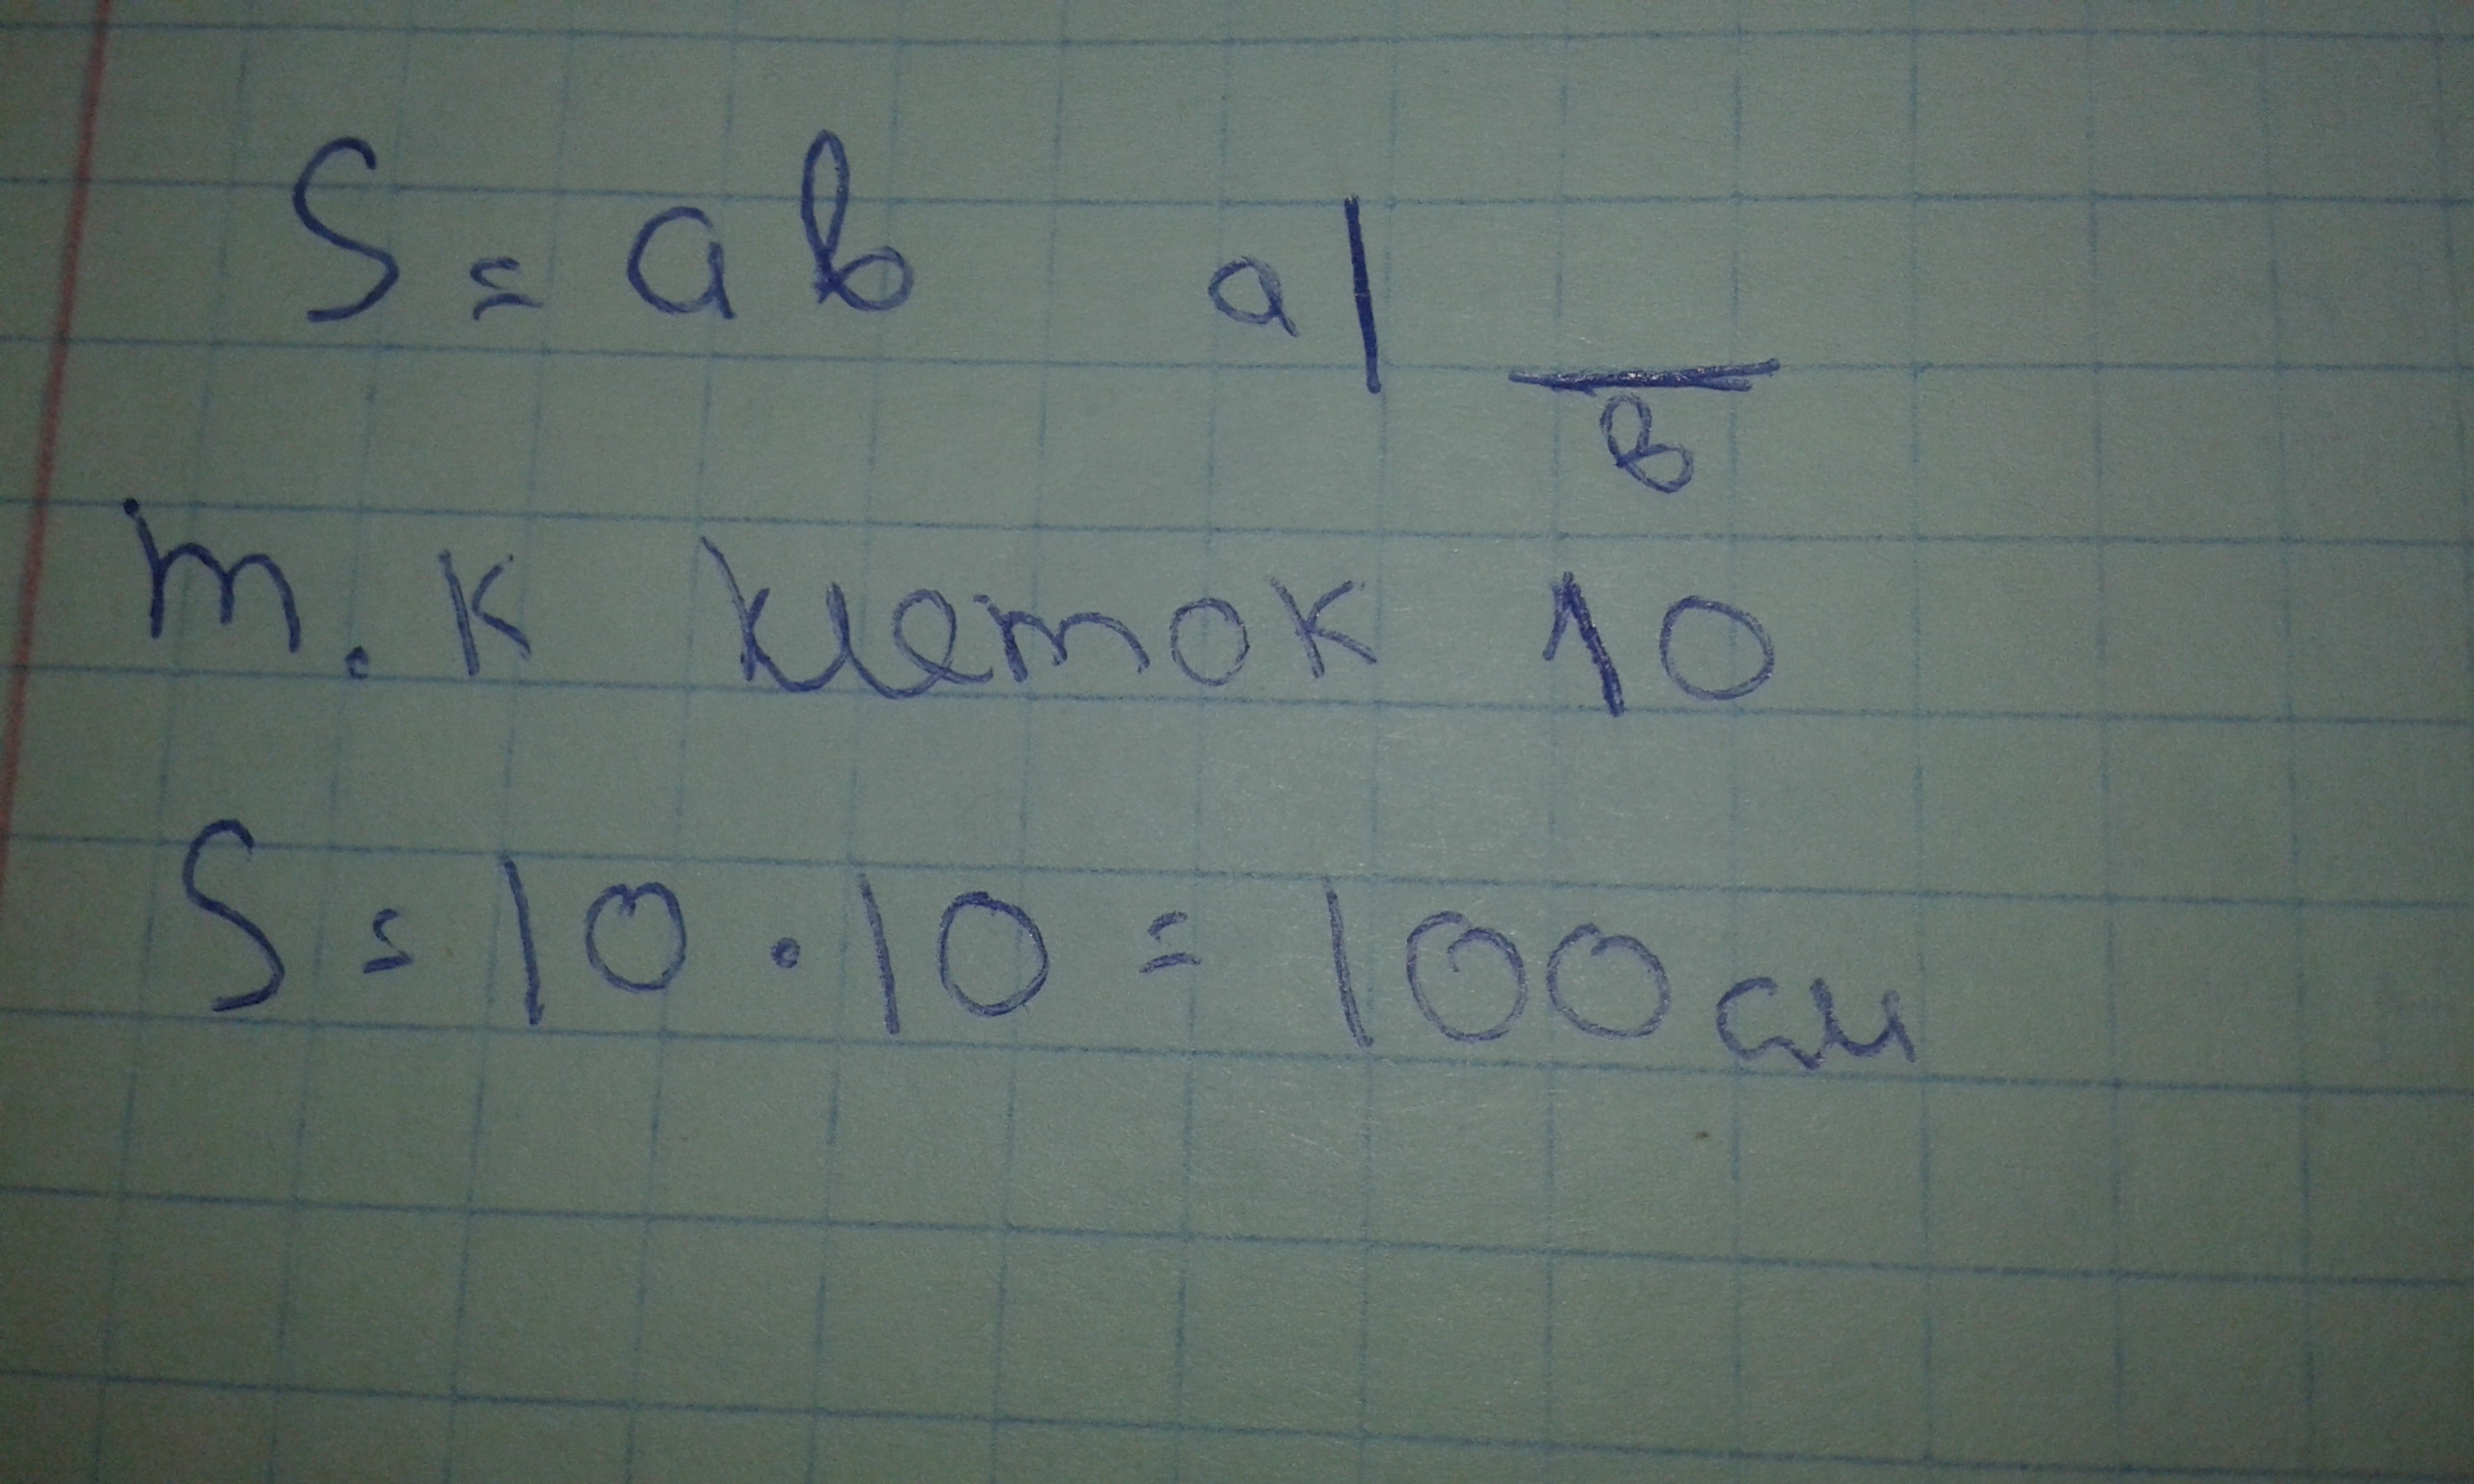 S = ab a
в
т.к клеток 10
S = 10 · 10 = 100 см